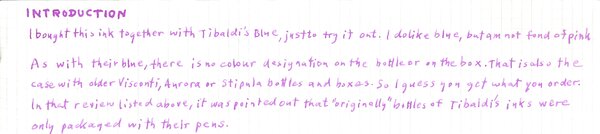 INTRODUCTION
I bought this ink together with Tibaldi's Blue, just to try it out. I do like blue, but am not fond of pink
As with their blue, there is no colour designation on the bottle or on the box. That is also the
case with older Visconti, Aurora or Stipula bottles and boxes. So I guess you get what you order.
In that review listed above, it was pointed out that "originally" bottles of Tibaldi's inks were
only packaged with their pens.